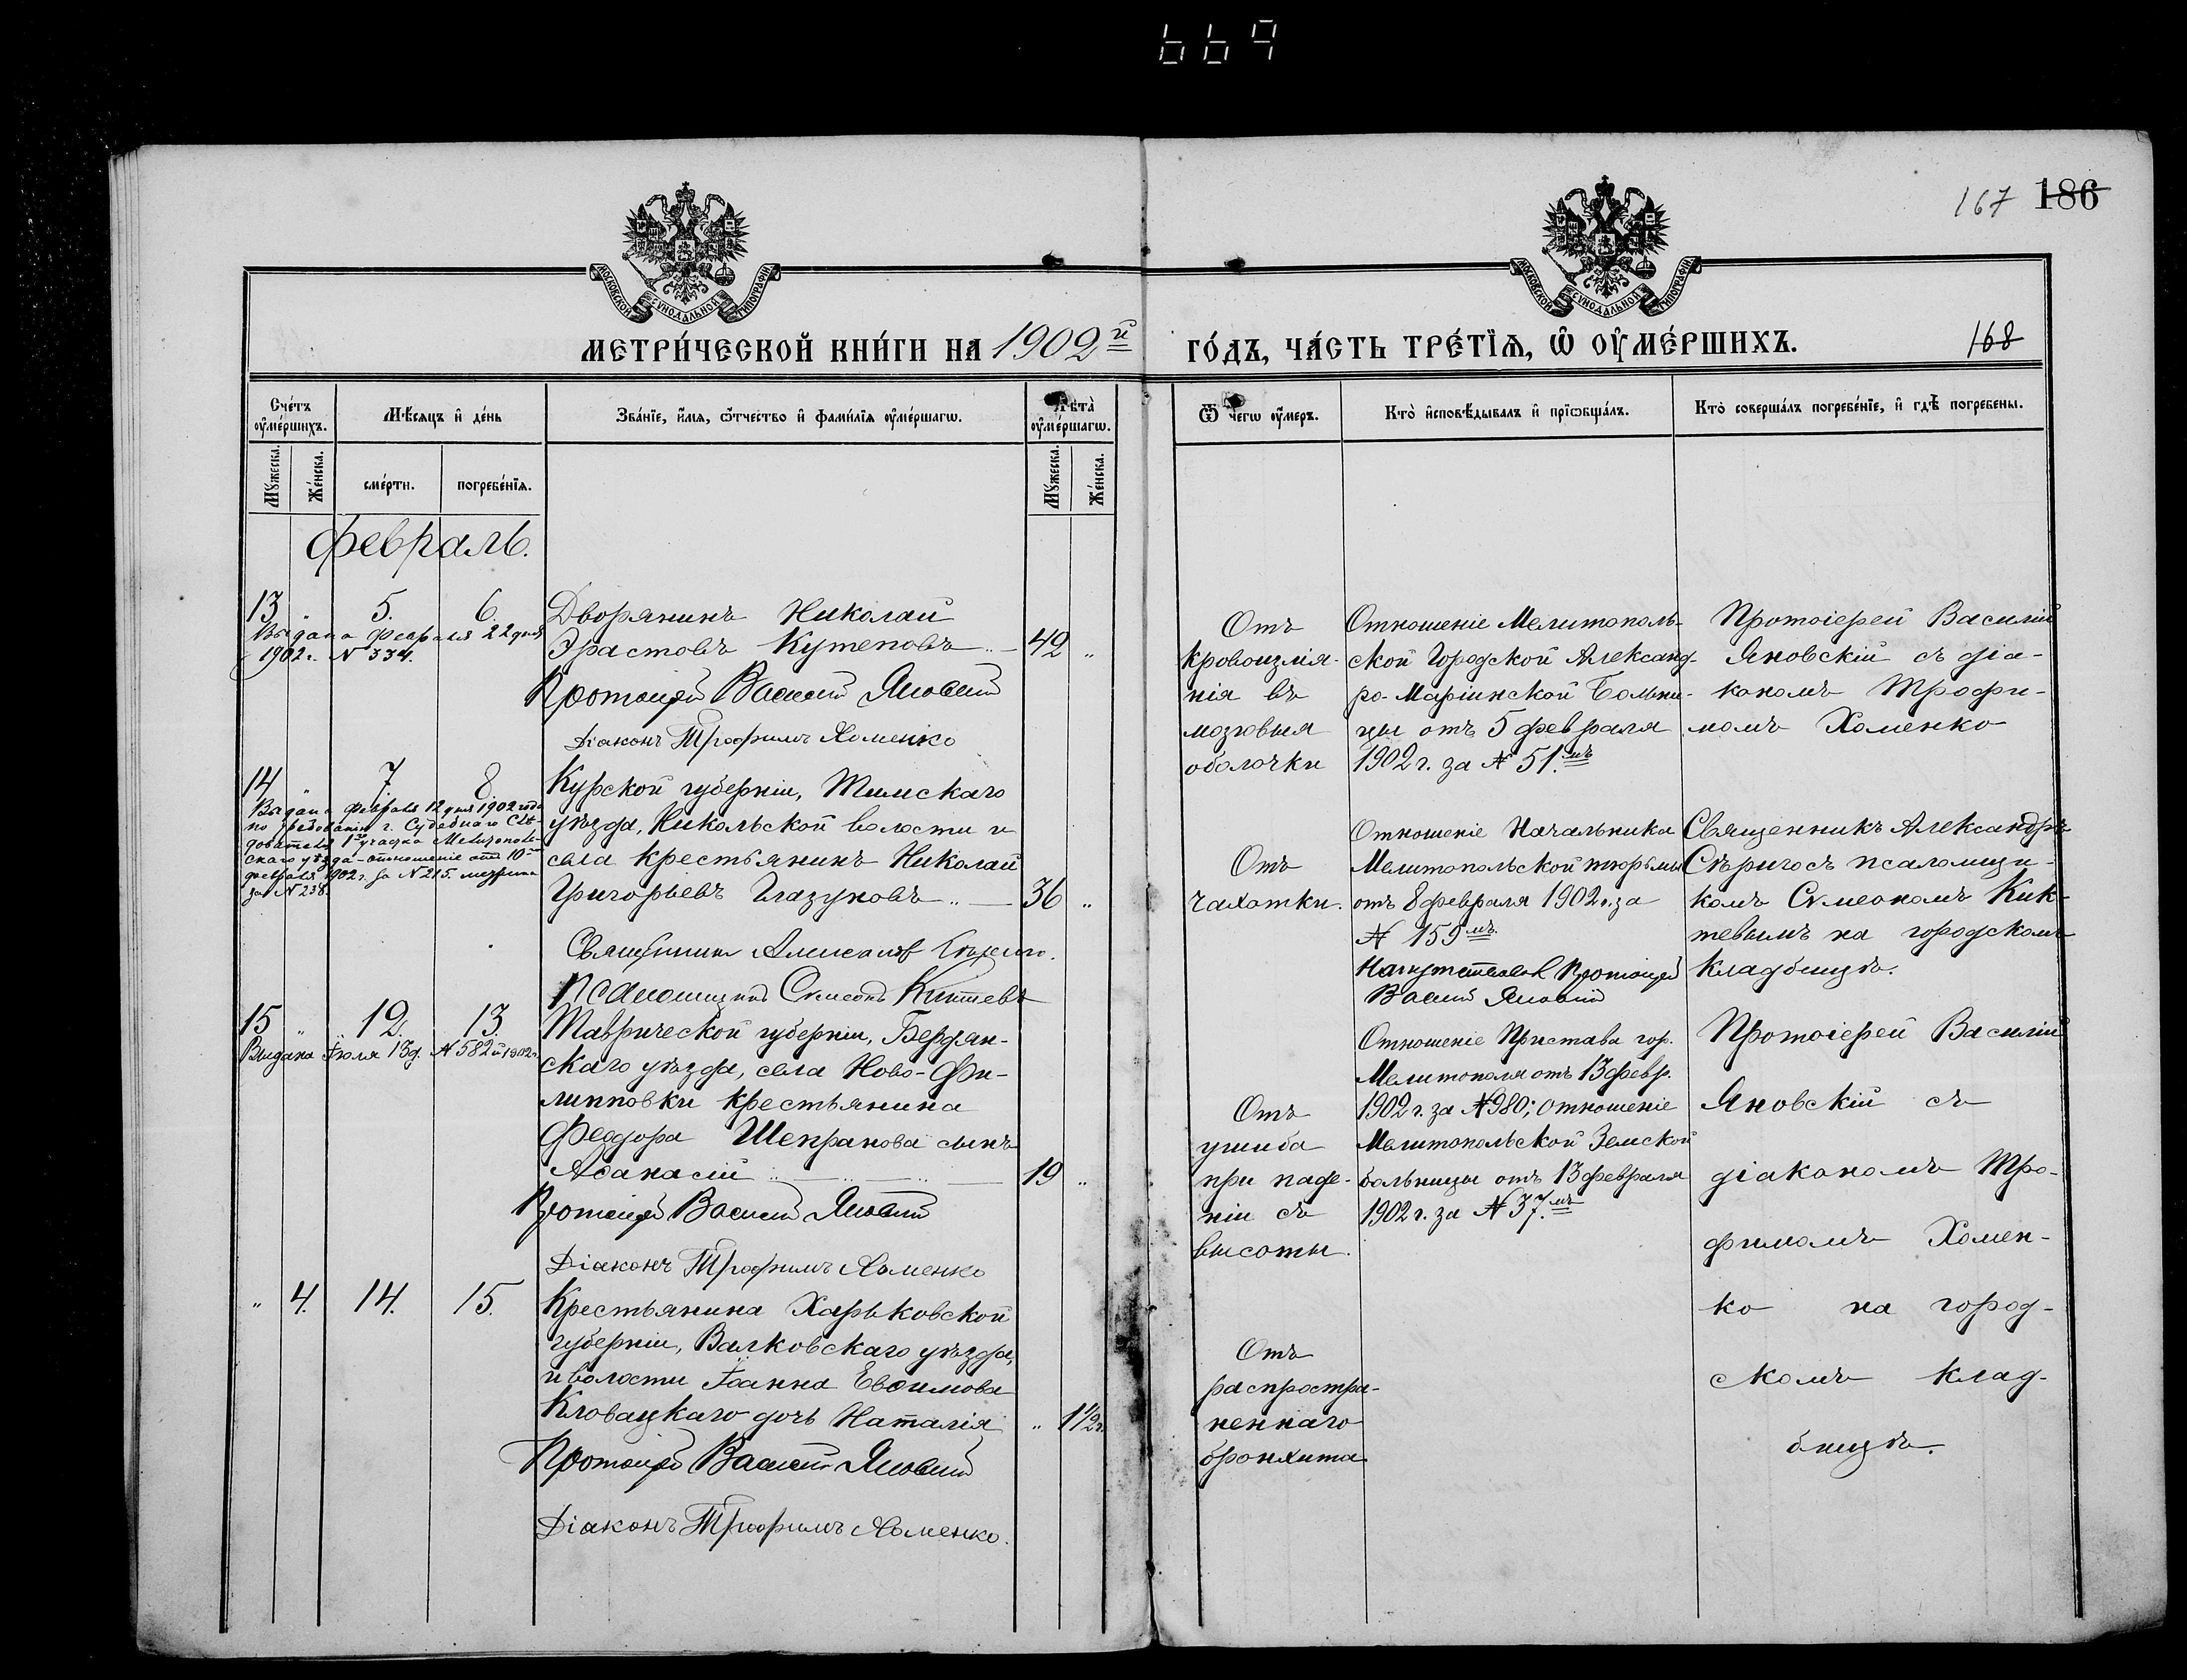 667
167 186
МОСКОВСКОЙ СѴНОДАЛЬНОЙ ТИПОГРАФІИ
МОСКОВСКОЙ СѴНОДАЛЬНОЙ ТИПОГРАФІИ
МЕТРИ́ЧЕСКОЙ КНИ́ГИ НА 1902й ГО́ДЪ, ЧА́СТЬ ТРЕ́ТЇѦ, Ѡ ОУМЕ́РШИХЪ.
168
Сче́тъ оуме́ршихъ.
Мѣ́сяцъ и де́нь
Зва́нїе, и́мя, ѿчество и фами́лїя оуме́ршагѡ.
Лѣта̀ оуме́ршагѡ.
Ѿ чегѡ̀ оу́меръ.
Кто̀ исповѣ́дывалъ и прїѡбща́лъ.
Кто̀ соверша́лъ погребе́нїе, и гдѣ̀ погребены.
Му́жеска.
Же́нска.
сме́рти.
погребе́нїя.
Му́жеска.
Же́нска.
Февраль.
13 „ 5. 6.
Выдана Февраля 22 дня
1902 г. № 334.
Дворянинъ Николай
Эрастовъ Кутеповъ 42 „
Протоіерей Василій Яновскій
Діаконъ Трофимъ Хоменко
Отъ
кровоизлія-
нія въ
мозговыя
оболочки
Отношеніе Мелитополь-
ской Городской Александ-
ро-Маріинской Больни-
цы отъ 5 февраля
1902 г. за № 51.мъ
Протоіерей Василій
Яновскій съ діа-
кономъ Трофи-
момъ Хоменко
14 „ 7. 8.
Выдана февраля 12 дня 1902 года
по требованію г. Судебнаго Слѣ-
дователя 1го участка Мелитополь-
скаго уѣзда - отношеніе отъ 10го
февраля 1902 г. за № 215.
за № 238.
Курской губерніи, Тимскаго
уѣзда, Никольской волости и
села крестьянинъ Николай
Григорьевъ Глазуновъ 36 „
Священникъ Александръ
Псаломщикъ Симеонъ Киктевъ
Отъ
чахотки.
Отношеніе Начальника
Мелитопольской тюрьмы
отъ 8 февраля 1902 г. за
№ 159мъ.
Напутствовалъ Протоіерей
Василій Яновскій
Священникъ Александръ
псаломщи-
комъ Симеономъ Кик-
тевымъ на городскомъ
кладбищѣ.
15 „ 12. 13.
Выдана Іюля 13 д. № 582й 1902 г.
Таврической губерніи, Бердян-
скаго уѣзда, села Ново-Фи-
липповки крестьянина
Феодора Шепранова сынъ
Аѳанасій 19 „
Протоіерей Василій Яновскій
Діаконъ Трофимъ Хоменко
Отъ
ушиба
при паде-
ніи съ
высоты.
Отношеніе Пристава гор.
Мелитополя отъ 13 февр.
1902 г. за № 980; отношеніе
Мелитопольской Земской
больницы отъ 13 февраля
1902 г. за № 37.мъ
Протоіерей Василій
Яновскій съ
діакономъ Тро-
фимомъ Хомен-
ко на город-
скомъ клад-
бищѣ.
„ 4. 14. 15.
Крестьянина Харьковской
губерніи, Валковскаго уѣзда,
и волости Іоанна Евѳимова
Кловацкаго дочь Наталія „ 1 1/2 г.
Протоіерей Василій Яновскій
Діаконъ Трофимъ Хоменко.
Отъ
распростра-
неннаго
бронхита